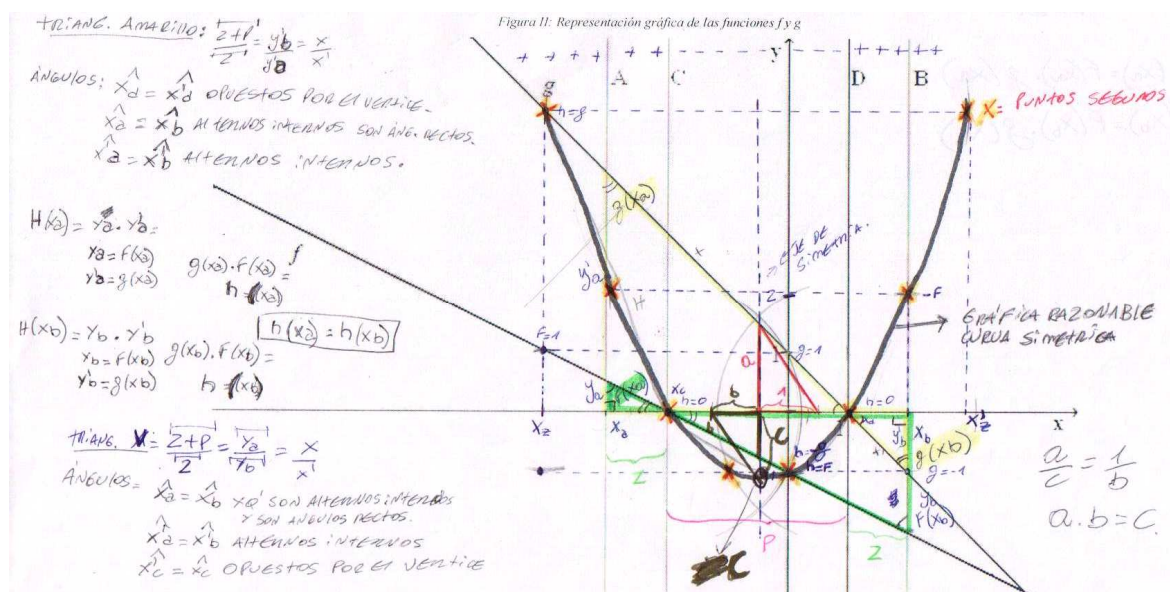 Figura II: Representación gráfica de las funciones f y g
TRIANG. AMARILLO: Z+P/Z = y'b/y'a = x/x'
ÁNGULOS: x̂d = x̂'d OPUESTOS POR EL VERTICE.
x̂a = x̂b ALTERNOS INTERNOS SON ANG. RECTOS.
x̂'a = x̂'b ALTERNOS INTERNOS.
H(xa) = ya · y'a =
ya = f(xa)
y'a = g(xa)
g(xa) · F(xa) =
h = f(xa)
H(xb) = yb · y'b
yb = f(xb)
y'b = g(xb)
g(xb) · F(xb) =
h = f(xb)
h(xa) = h(xb)
TRIANG. V: Z+P/Z = ya/yb = x/x'
ÁNGULOS = x̂a = x̂b XQ' SON ALTERNOS INTERNOS
Y SON ANGULOS RECTOS.
x̂'a = x̂'b ALTERNOS INTERNOS
x̂'c = x̂c OPUESTOS POR EL VERTICE
+ + + +
y
+ + + + +
A
C
D
B
g
h=g
X = PUNTOS SEGUROS
g(xa)
x
EJE DE
SIMETRIA.
y'a
H
2
-F
GRÁFICA RAZONABLE
CURVA SIMETRICA
F=1
a
1
g=1
ya
F(xa)
xc
h=0
b
1
h=0
xd
xz
xa
yb
xb
x'z
x
C
g(xb)
g=-1
h=F
yb
F(xb)
Z
P
Z
C
a/c = 1/b
a.b=C